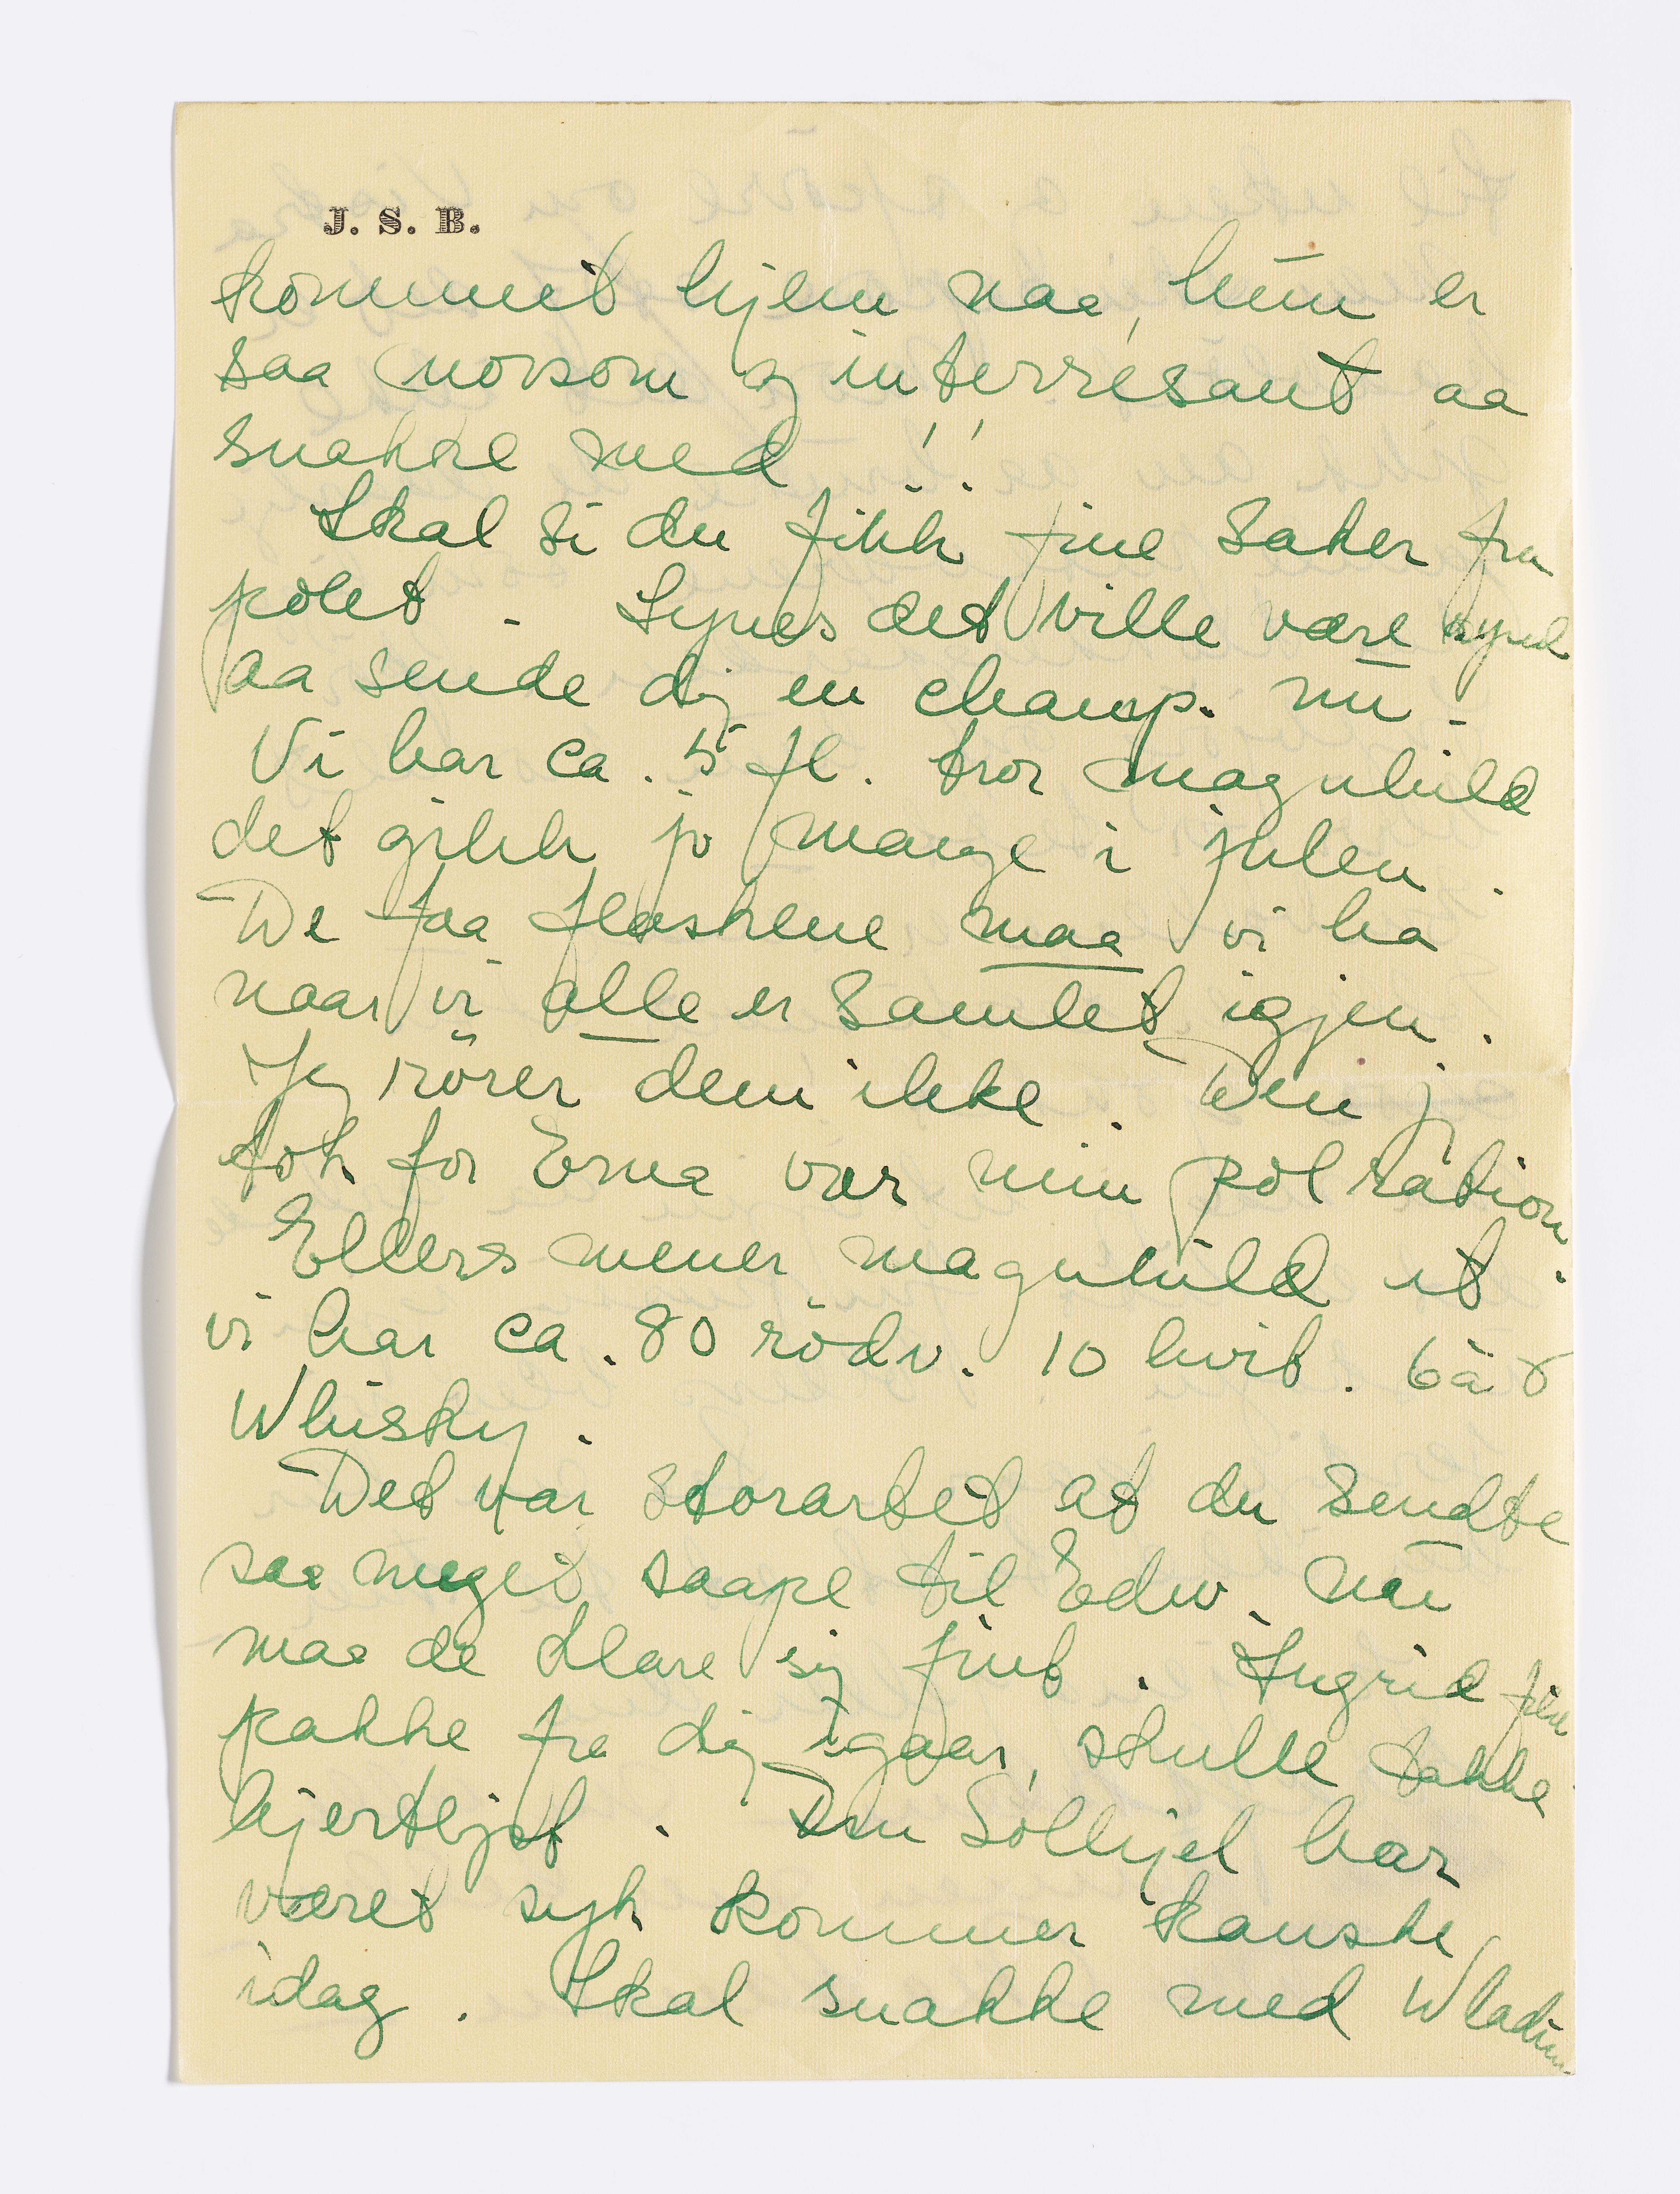 J. S. B.
kommet hjem naa, hun er
saa morsom og interresant aa
snakke med !!
Skal si du fikk fine saker fra
polet. Synes det ville være synd
aa sende dig en champ. nu.
Vi har ca. 5 fl. tror Magnhild
det gikk jo mange i julen.
De faa flaskene maa vi ha
naar vi alle er samlet igjen.
Jeg rörer dem ikke. Den j
tok for Erna var min pol ration.
Ellers mener Magnhild at
vi har ca. 80 rödv. 10 hvit. 6 à 8
Whisky.
Det var storartet at du sendte
saa meget saape til Edw. nu
maa de klare sig fint. Ingrid fikk
pakke fra dig igaar, skulle takke
hjertligst. Fru Sollijel har
været syk kommer kanske
idag. Skal snakke med Wladim